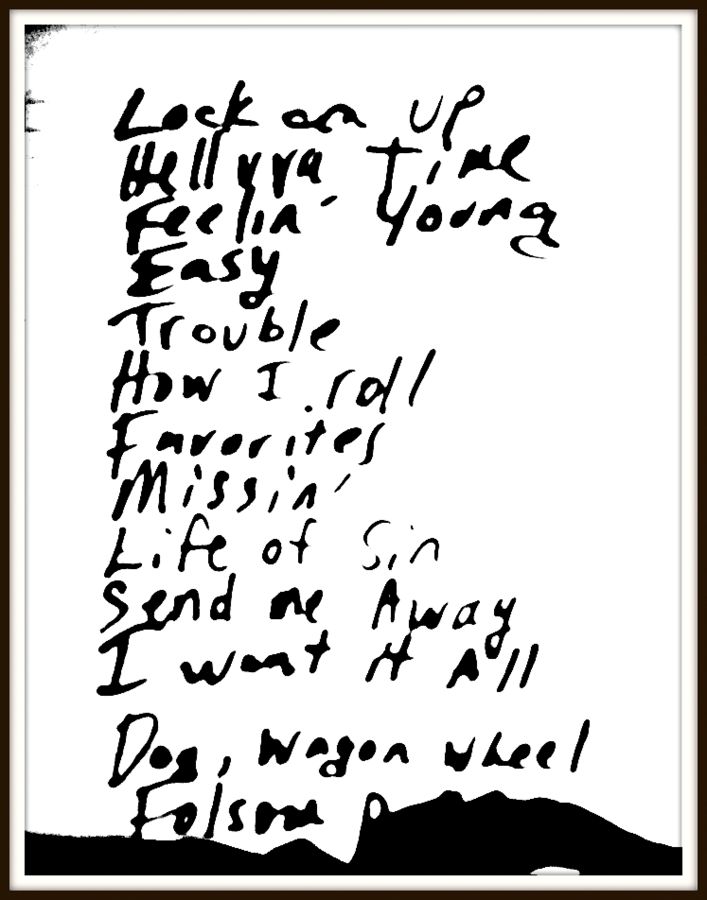 Lock em up
Hellyva time
Feelin' Young
Easy
Trouble
How I roll
Favorites
Missin'
Life of Sin
Send me Away
I want it All
Dog, wagon wheel
Folsom P